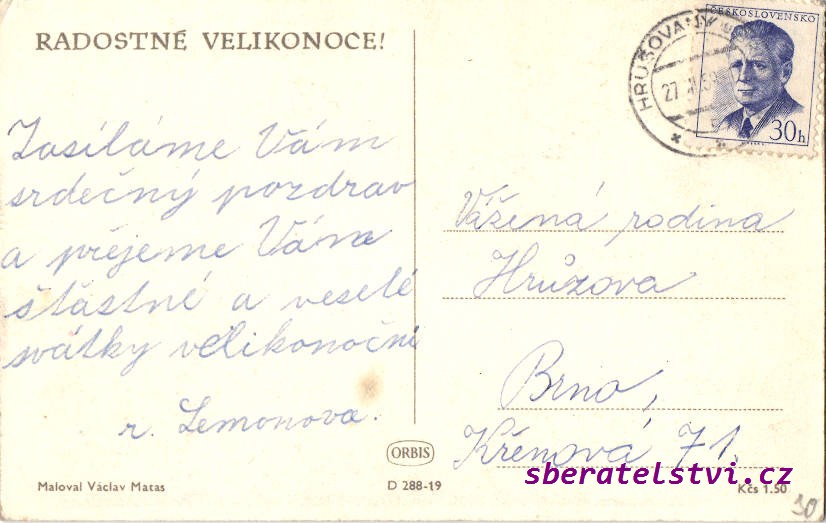 RADOSTNÉ VELIKONOCE!
Zasíláme Vám
srdečný pozdrav
a přejeme Vám
šťastné a veselé
svátky velikonoční
r. Lemonova.
Maloval Václav Matas
ORBIS
D 288-19
ČESKOSLOVENSKO
30h
HRUŠOVANY
27
Vážená rodina
Hrůzova
Brno,
Křenová 71.
sberatelstvi.cz
Kčs 1.50
30